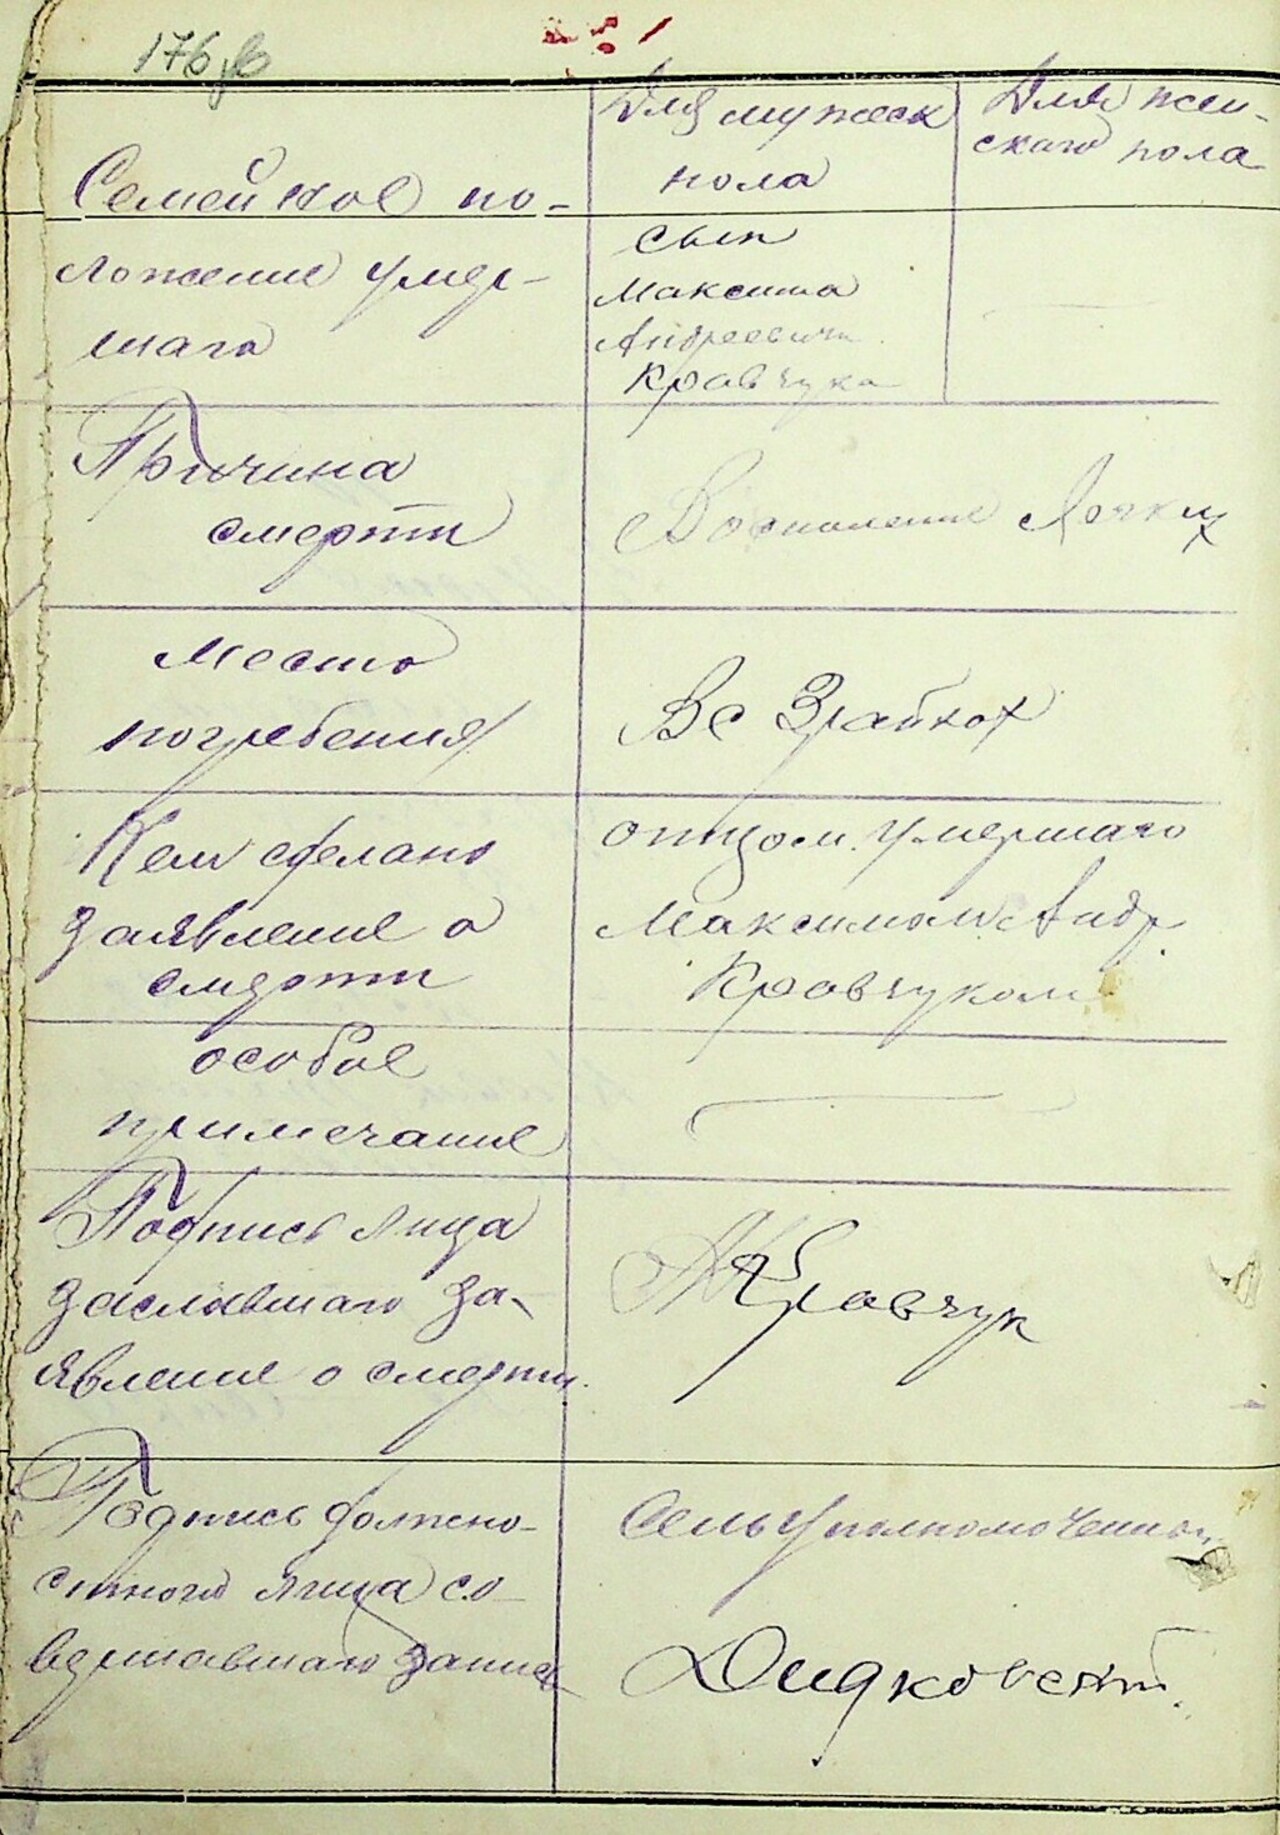 176 об
Для мужеск
пола
Для жен-
скаго пола
Семейное по-
ложение умер-
шаго
сын
Максима
Андреевича
Кравчука
Причина
смерти
Воспаление Легких
Место
погребения
В с
Кем сделано
заявление о
смерти
отцом умершаго
Максимом Андр.
Кравчуком
особое
примечание
Подпись лица
за-
явление о смерти.
Кравчук
Подпись должно-
стного лица со-
вершавшаго запись
Сельуполномоченный
Дидковский.